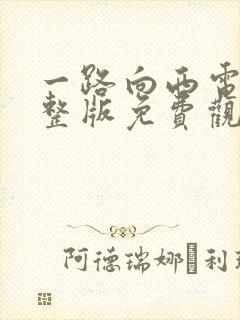 一路向西電
整版免費觀
阿德瑞娜·利